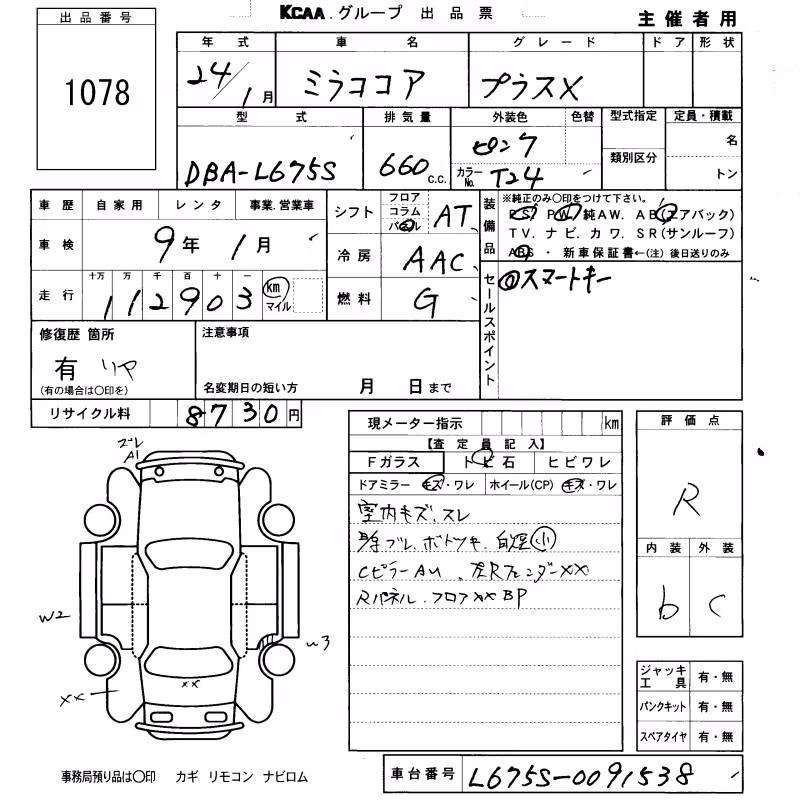 出品番号
1078
KCAA.グループ 出品票
主催者用
年式 車名 グレード ドア 形状
24/1月 ミラココア プラスX
型式 排気量 外装色 色替 型式指定 定員・積載
DBA-L675S 660 c.c. ピンク 名
カラーNo. T24 類別区分 トン
車歴 自家用 レンタ 事業.営業車
シフト フロア コラム パネル AT
装備品
※純正のみ〇印をつけて下さい。
P.S. P.W. 純AW. AB(エアバック)
TV. ナビ. カワ. SR(サンルーフ)
ABS ・ 新車保証書←(注) 後日送りのみ
車検 9年 1月
冷房 AAC
走行 十万 万 千 百 十 一
112903 km マイル
燃料 G
セールスポイント
◎スマートキー
修復歴 箇所 注意事項
有 リヤ
(有の場合は〇印を)
名変期日の短い方 月 日まで
リサイクル料 8730円
現メーター指示 km
【査定員記入】
Fガラス トビ石 ヒビワレ
ドアミラー キズ・ワレ ホイール(CP) キズ・ワレ
室内キズ.スレ
ブレ.ボトツキ. 小
CピラーAU. 左Rフェンダーxx
Rパネル.フロアxx BP
評価点
R
内装 外装
b c
ズレ
A1
W2
W3
xx
xx
ジャッキ工具 有・無
パンクキット 有・無
スペアタイヤ 有・無
事務局預り品は〇印 カギ リモコン ナビロム
車台番号 L675S-0091538